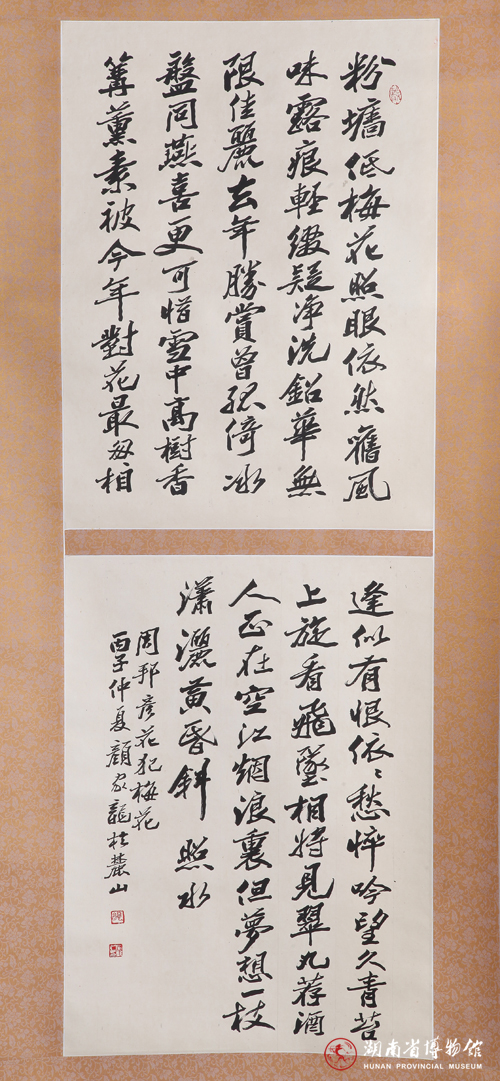 粉墻低梅花照眼依然舊風
味露痕輕綴疑净洗鉛華無
限佳麗去年勝賞曾孤倚冰
盤同燕喜更可惜雪中高樹香
篝薰素被今年對花最匆相
逢似有恨依〻愁悴吟望久青苔
上旋看飛墜相將見翠丸荐酒
人正在空江烟浪裏但夢想一枝
瀟灑黄昏斜照水
周邦彦花犯梅花
丙子仲夏顏家龍於麓山
湖南省博物館
HUNAN PROVINCIAL MUSEUM